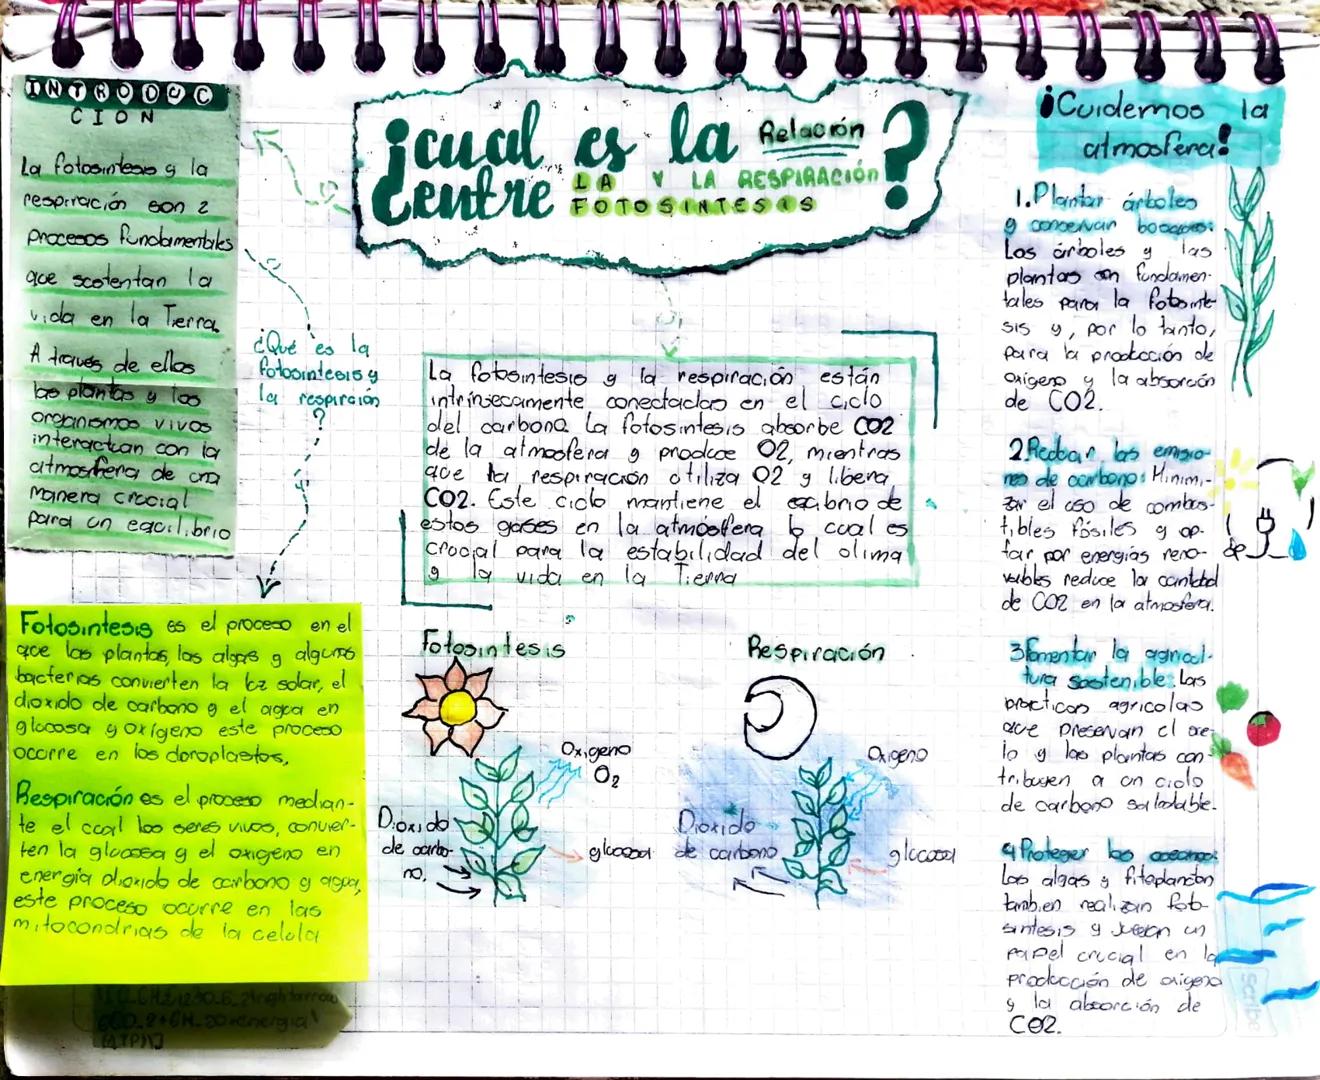 INTRODUC
CION
La fotosintesis y la
respiración son 2
procesos fundamentales
que scotentan la
vida en la Tierra.
A través de ellos
las plantas y los
organismos vivos
interactuan con la
atmosfera de una
manera crucial
para un equilibrio
¿cual es la Relación
entre LA FOTOSINTESIS Y LA RESPIRACIÓN?
¿Qué es la
fotosintesis y
la respiración
?
La fotosintesis y la respiración están
intrinsecamente conectadas en el ciclo
del carbono. La fotosintesis absorbe CO2
de la atmosfera y produce O2, mientras
que la respiración utiliza O2 y libera
CO2. Este ciclo mantiene el eqibrio de
estos gases en la atmósfera lo cual es
crucial para la estabilidad del clima
y la vida en la Tierra
Fotosintesis es el proceso en el
que las plantas, las algas y algunas
bacterias convierten la luz solar, el
dioxido de carbono y el agua en
glucosa y oxígeno este proceso
ocurre en los cloroplastos,
Respiración es el proceso median-
te el cual los seres vivos, convier-
ten la glucosa y el oxigeno en
energía dioxido de carbono y agua,
este proceso ocurre en las
mitocondrias de la celula
Fotosintesis
Oxigeno
O2
Dioxido
de carbo-
no.
glucosa
Respiración
Oxigeno
Dioxido
de carbono
glucosa
¡Cuidemos la
atmosfera!
1.Plantar árboles
y conservar bosques:
Los árboles y las
plantas son fundamen-
tales para la fotosinte-
sis y, por lo tanto,
para la producción de
oxigeno y la absorción
de CO2.
2.Reducir las emisio-
nes de carbono: Minimi-
zar el uso de combus-
tibles fósiles y op-
tar por energías reno-
vables reduce la cantidad de
de CO2 en la atmosfera.
3Fomentar la agricul-
tura sostenible: Las
practicas agricolas
que preservan el sue-
lo y las plantas con-
tribuyen a un ciclo
de carbono saludable.
4Proteger los oceanos:
Las algas y fitoplancton
tambien realizan foto-
sintesis y juegan un
papel crucial en la
producción de oxigeno
y la absorción de
CO2.
Scribe